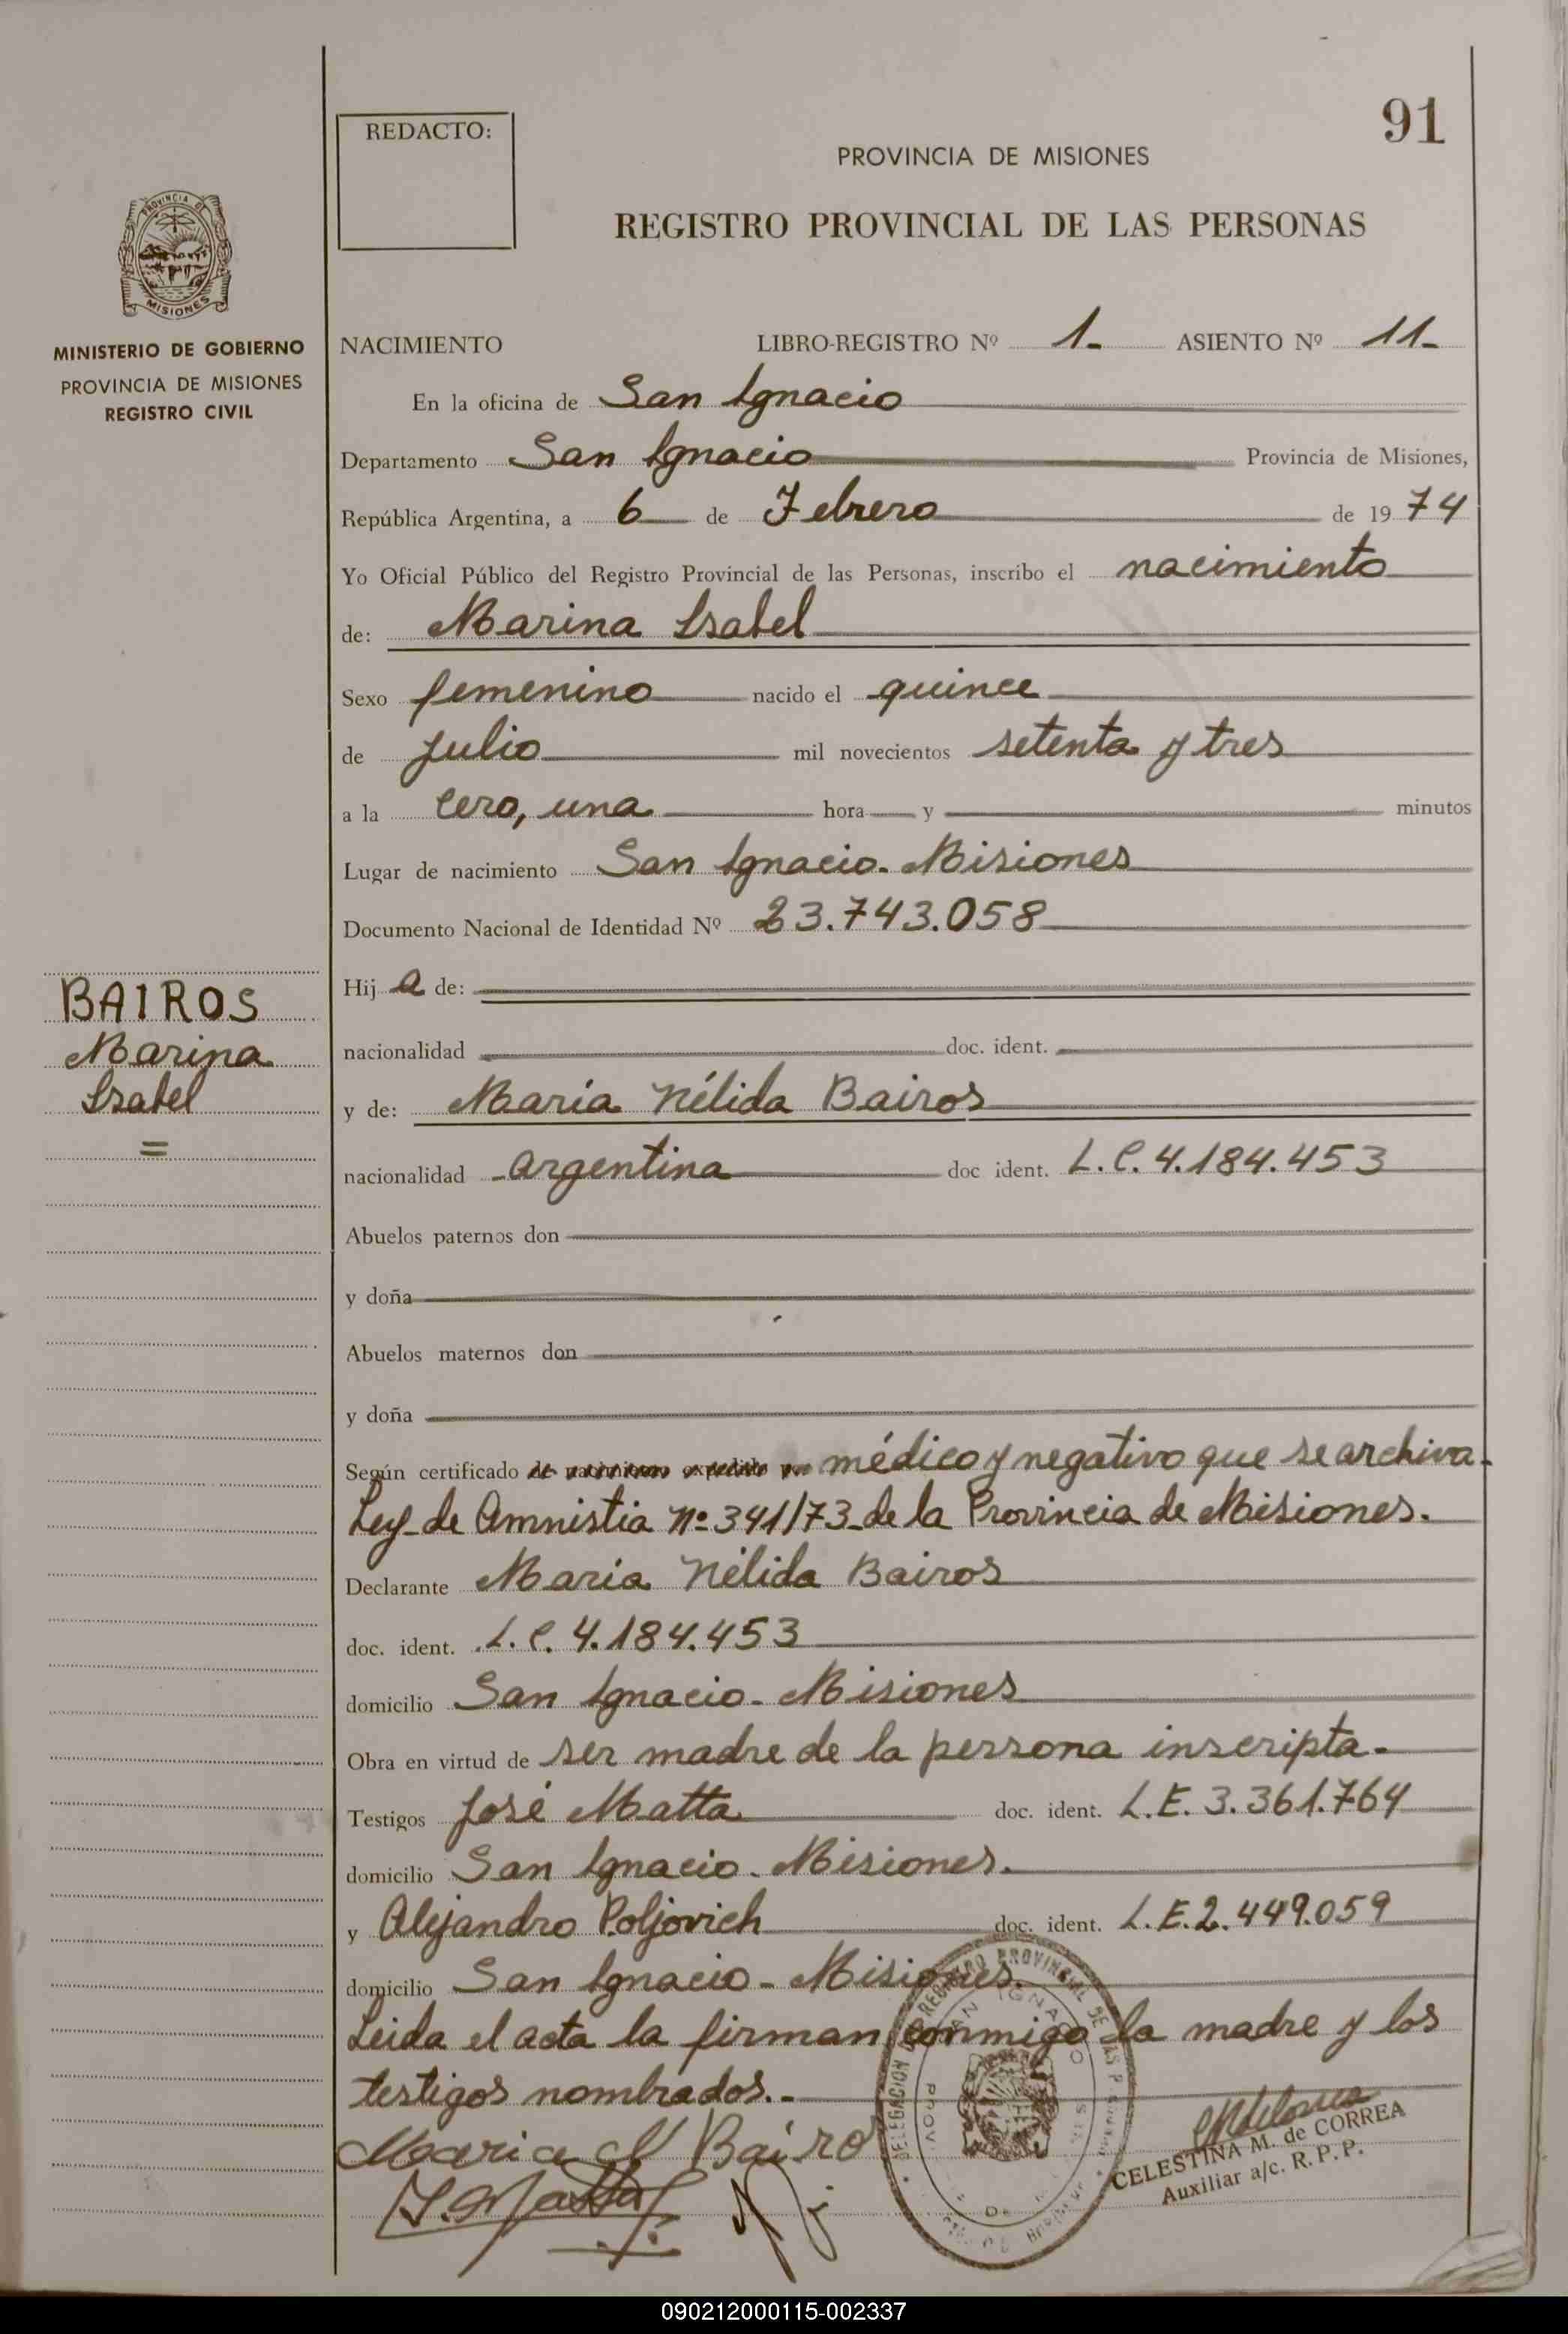 91
REDACTO:
PROVINCIA DE MISIONES
REGISTRO PROVINCIAL DE LAS PERSONAS
PROVINCIA DE
MISIONES
MINISTERIO DE GOBIERNO
PROVINCIA DE MISIONES
REGISTRO CIVIL
NACIMIENTO LIBRO-REGISTRO Nº 1- ASIENTO Nº 11-
En la oficina de San Ignacio
Departamento San Ignacio Provincia de Misiones,
República Argentina, a 6 de Febrero de 1974
Yo Oficial Público del Registro Provincial de las Personas, inscribo el nacimiento
de: Marina Isabel
Sexo femenino nacido el quince
de julio mil novecientos setenta y tres
a la cero, una hora y minutos
Lugar de nacimiento San Ignacio. Misiones
Documento Nacional de Identidad Nº 23.743.058
BAIROS
Marina
Isabel
=
Hij a de:
nacionalidad doc. ident.
y de: María Nélida Bairos
nacionalidad Argentina doc ident. L.C. 4.184.453
Abuelos paternos don
y doña
Abuelos maternos don
y doña
Según certificado médico y negativo que se archiva.
Ley de Amnistia nº 341/73 de la Provincia de Misiones.
Declarante María Nélida Bairos
doc. ident. L.C. 4.184.453
domicilio San Ignacio. Misiones
Obra en virtud de ser madre de la persona inscripta.
Testigos José Matta doc. ident. L.E. 3.361.764
domicilio San Ignacio. Misiones.
y Alejandro Poljovich doc. ident. L.E. 2.449.059
domicilio San Ignacio - Misiones.
Leida el acta la firman conmigo la madre y los
testigos nombrados.-
Maria N Bairo
J. Matta
CELESTINA M. de CORREA
Auxiliar a/c. R. P. P.
090212000115-002337